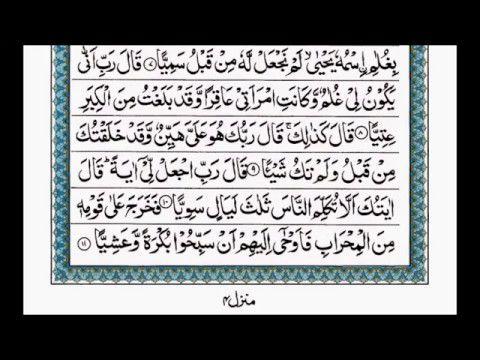 بِغُلٰمِ اِسْمُهٗ يَحْيٰى ۙ لَمْ نَجْعَلْ لَّهٗ مِنْ قَبْلُ سَمِيًّا ﴿۷﴾ قَالَ رَبِّ اَنّٰى
يَكُوْنُ لِىْ غُلٰمٌ وَّكَانَتِ امْرَاَتِىْ عَاقِرًا وَّقَدْ بَلَغْتُ مِنَ الْكِبَرِ
عِتِيًّا ﴿۸﴾ قَالَ كَذٰلِكَ ۚ قَالَ رَبُّكَ هُوَ عَلَىَّ هَيِّنٌ وَّقَدْ خَلَقْتُكَ
مِنْ قَبْلُ وَلَمْ تَكُ شَيْـًٔا ﴿۹﴾ قَالَ رَبِّ اجْعَلْ لِّىْٓ اٰيَةً ؕ قَالَ
اٰيَتُكَ اَلَّا تُكَلِّمَ النَّاسَ ثَلٰثَ لَيَالٍ سَوِيًّا ﴿۱۰﴾ فَخَرَجَ عَلٰى قَوْمِهٖ
مِنَ الْمِحْرَابِ فَاَوْحٰٓى اِلَيْهِمْ اَنْ سَبِّحُوْا بُكْرَةً وَّعَشِيًّا ﴿۱۱﴾
منزل ۴